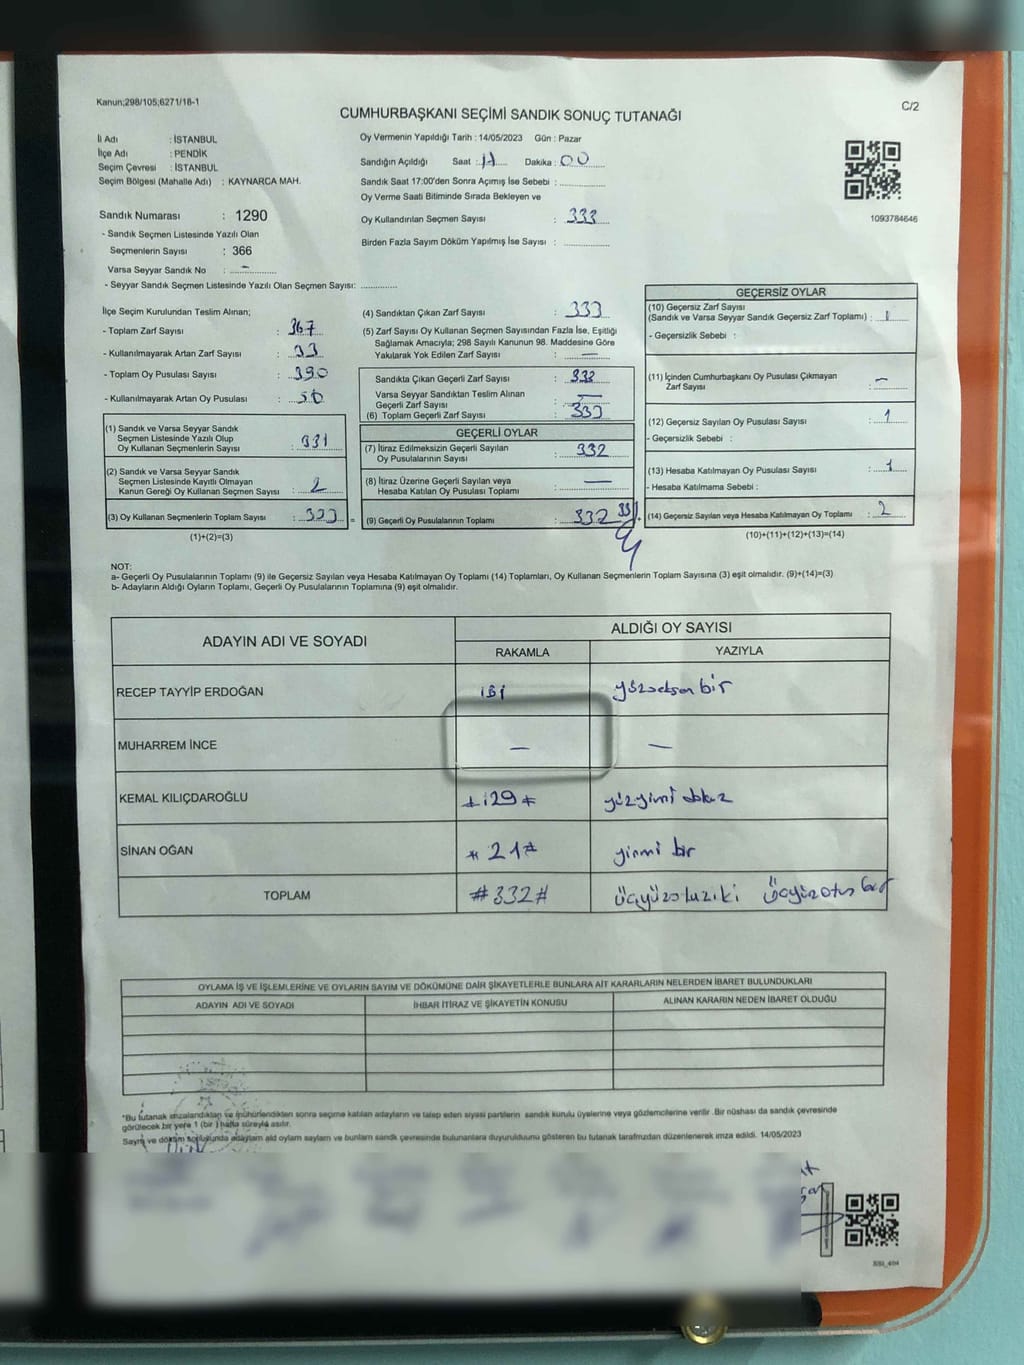 Kanun;298/105;6271/18-1
C/2
CUMHURBAŞKANI SEÇİMİ SANDIK SONUÇ TUTANAĞI
İli Adı : İSTANBUL
İlçe Adı : PENDİK
Seçim Çevresi : İSTANBUL
Seçim Bölgesi (Mahalle Adı) : KAYNARCA MAH.
Sandık Numarası : 1290
- Sandık Seçmen Listesinde Yazılı Olan
Seçmenlerin Sayısı : 366
Varsa Seyyar Sandık No : –
- Seyyar Sandık Seçmen Listesinde Yazılı Olan Seçmen Sayısı: ..............
Oy Vermenin Yapıldığı Tarih : 14/05/2023 Gün : Pazar
Sandığın Açıldığı Saat : Dakika : 00
Sandık Saat 17:00'den Sonra Açımış İse Sebebi : ..............
Oy Verme Saati Bitiminde Sırada Bekleyen ve
Oy Kullandırılan Seçmen Sayısı : 333
Birden Fazla Sayım Döküm Yapılmış İse Sayısı : ..............
1093784646
İlçe Seçim Kurulundan Teslim Alınan;
- Toplam Zarf Sayısı : 367
- Kullanılmayarak Artan Zarf Sayısı : 33
- Toplam Oy Pusulası Sayısı : 390
- Kullanılmayarak Artan Oy Pusulası :
(1) Sandık ve Varsa Seyyar Sandık
Seçmen Listesinde Yazılı Olup
Oy Kullanan Seçmenlerin Sayısı : 331
(2) Sandık ve Varsa Seyyar Sandık
Seçmen Listesinde Kayıtlı Olmayan
Kanun Gereği Oy Kullanan Seçmen Sayısı : 2
(3) Oy Kullanan Seçmenlerin Toplam Sayısı : 333 =
(1)+(2)=(3)
(4) Sandıktan Çıkan Zarf Sayısı : 333
(5) Zarf Sayısı Oy Kullanan Seçmen Sayısından Fazla İse, Eşitliği
Sağlamak Amacıyla; 298 Sayılı Kanunun 98. Maddesine Göre
Yakılarak Yok Edilen Zarf Sayısı : —
Sandıkta Çıkan Geçerli Zarf Sayısı : 333
Varsa Seyyar Sandıktan Teslim Alınan
Geçerli Zarf Sayısı : —
(6) Toplam Geçerli Zarf Sayısı : 333
GEÇERLİ OYLAR
(7) İtiraz Edilmeksizin Geçerli Sayılan
Oy Pusulalarının Sayısı : 332
(8) İtiraz Üzerine Geçerli Sayılan veya
Hesaba Katılan Oy Pusulası Toplamı : —
(9) Geçerli Oy Pusulalarının Toplamı : 332 331
GEÇERSİZ OYLAR
(10) Geçersiz Zarf Sayısı
(Sandık ve Varsa Seyyar Sandık Geçersiz Zarf Toplamı) : 1
- Geçersizlik Sebebi :
(11) İçinden Cumhurbaşkanı Oy Pusulası Çıkmayan
Zarf Sayısı : –
(12) Geçersiz Sayılan Oy Pusulası Sayısı : 1
- Geçersizlik Sebebi :
(13) Hesaba Katılmayan Oy Pusulası Sayısı : 1
- Hesaba Katılmama Sebebi :
(14) Geçersiz Sayılan veya Hesaba Katılmayan Oy Toplamı : 2
(10)+(11)+(12)+(13)=(14)
NOT:
a- Geçerli Oy Pusulalarının Toplamı (9) ile Geçersiz Sayılan veya Hesaba Katılmayan Oy Toplamı (14) Toplamları, Oy Kullanan Seçmenlerin Toplam Sayısına (3) eşit olmalıdır. (9)+(14)=(3)
b- Adayların Aldığı Oyların Toplamı, Geçerli Oy Pusulalarının Toplamına (9) eşit olmalıdır.
ADAYIN ADI VE SOYADI
ALDIĞI OY SAYISI
RAKAMLA YAZIYLA
RECEP TAYYİP ERDOĞAN 181 yüzseksen bir
MUHARREM İNCE — —
KEMAL KILIÇDAROĞLU 129 yüzyirmi dokuz
SİNAN OĞAN * 21 * yirmi bir
TOPLAM # 332 # üçyüzotuziki üçyüzotuz bir
OYLAMA İŞ VE İŞLEMLERİNE VE OYLARIN SAYIM VE DÖKÜMÜNE DAİR ŞİKAYETLERLE BUNLARA AİT KARARLARIN NELERDEN İBARET BULUNDUKLARI
ADAYIN ADI VE SOYADI İHBAR İTİRAZ VE ŞİKAYETİN KONUSU ALINAN KARARIN NEDEN İBARET OLDUĞU
*Bu tutanak imzalandıktan ve mühürlendikten sonra seçime katılan adayların ve talep eden siyasi partilerin sandık kurulu üyelerine veya gözlemcilerine verilir. Bir nüshası da sandık çevresinde
görülecek bir yere 1 (bir) hafta süreyle asılır.
Sayım ve döküm sonucunda adayların aldığı oyların sayıları ve bunların sandık çevresinde bulunanlara duyurulduğunu gösteren bu tutanak tarafımızdan düzenlenerek imza edildi. 14/05/2023